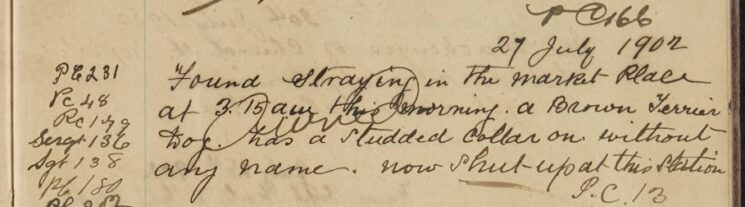 PC166
27 July 1902
PC231
Pc 48
Pc 179
Sergt 136
Sgt 138
PC 180
Found Straying in the Market Place
at 3.15 am this morning. a Brown Terrier
Dog. has a Studded collar on without
any name. now Shut up at this Station
P.C. 13